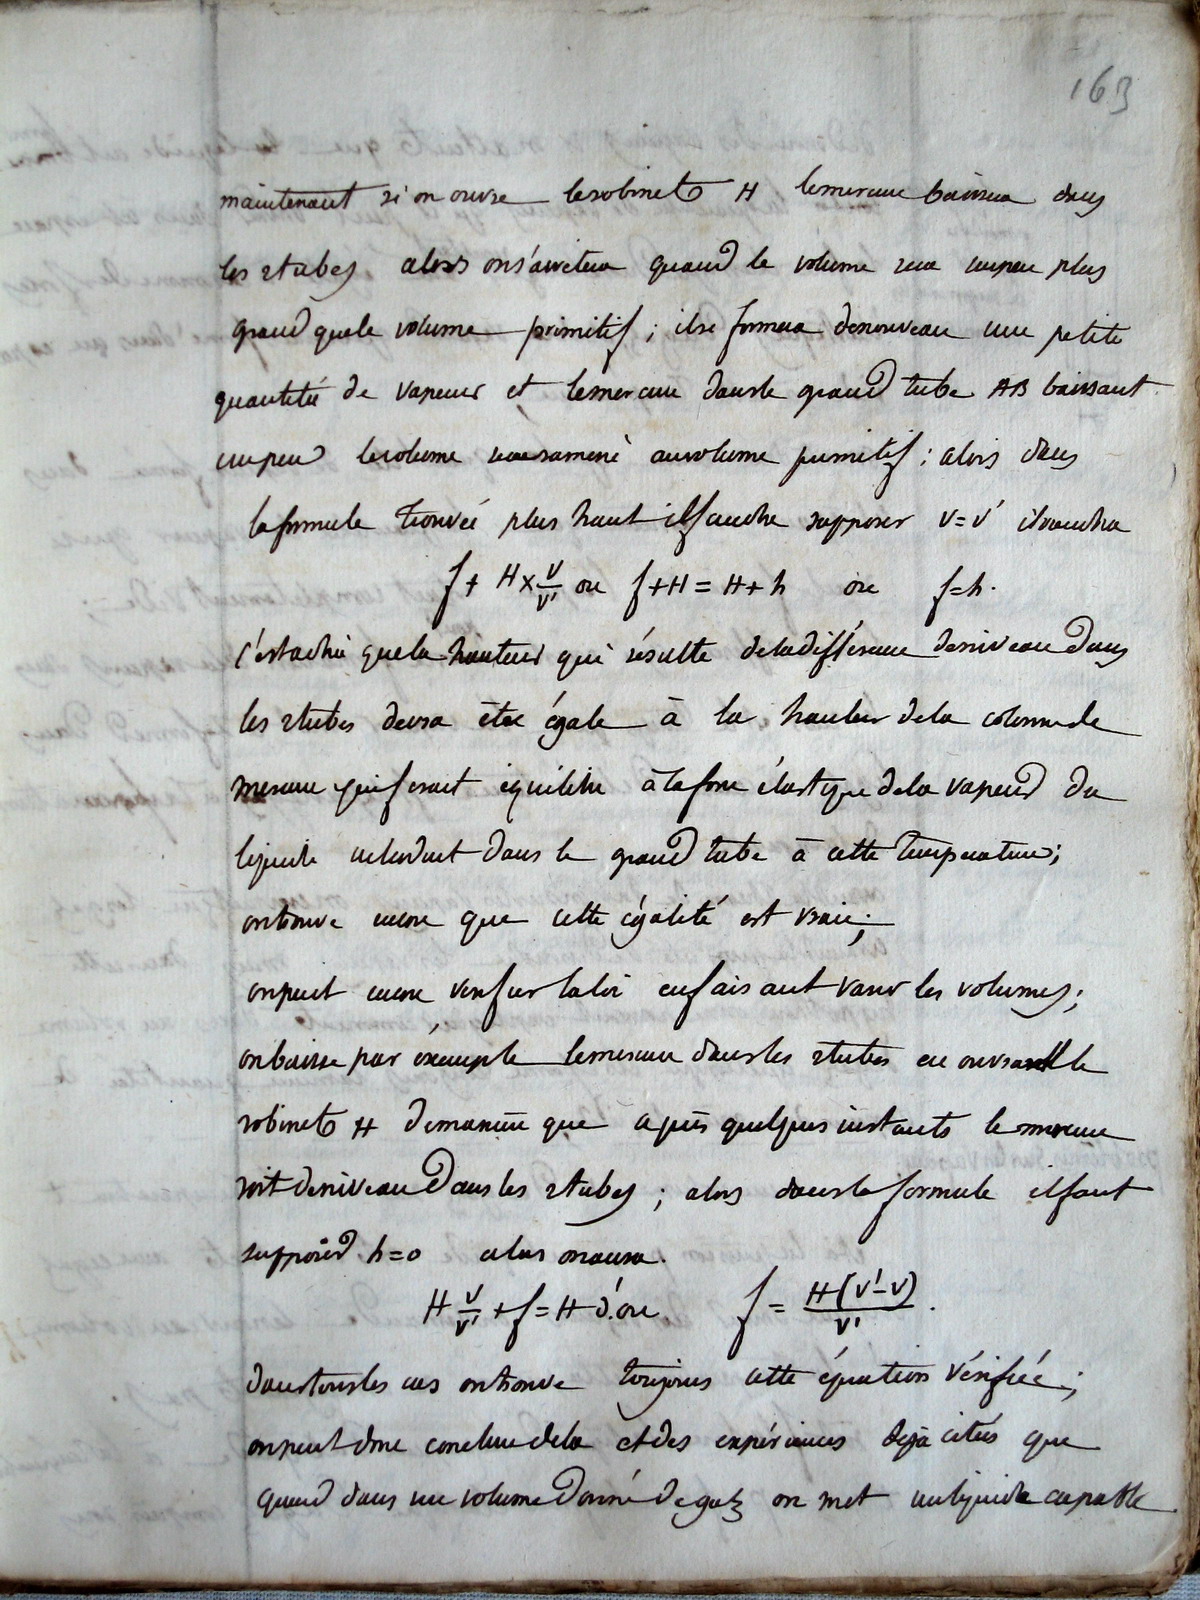 163
maintenant si on ouvre le robinet H le mercure baissera dans
les 2 tubes alors on s'arretera quand le volume sera un peu plus
grand que le volume primitif ; il se formera de nouveau une petite
quantité de vapeur et le mercure dans le grand tube AB baissant
un peu le volume sera ramené au volume primitif ; alors dans
la formule trouvée plus haut il faudra supposer v = v' il viendra
f + H × v/v' ou f + H = H + h ou f = h.
c'est a dire que la hauteur qui résulte de la différence de niveau dans
les 2 tubes devra être égale à la hauteur de la colonne de
mercure qui ferait équilibre à la force élastique de la vapeur du
liquide introduit dans le grand tube à cette température ;
on trouve encore que cette égalité est vraie ;
on peut encore vérifier la loi en faisant varier les volumes ;
on baisse par éxemple le mercure dans les 2 tubes en ouvrant le
robinet H de maniere que après quelques instants le mercure
soit de niveau dans les 2 tubes ; alors dans la formule il faut
supposer h = 0 alors on aura.
H v/v' + f = H d'ou f = H(v' - v)/v' .
dans tous les cas on trouve toujours cette équation vérifiée ;
on peut donc conclure de la et des expériences dejà citées que
quand dans un volume donné de gaz on met un liquide capable